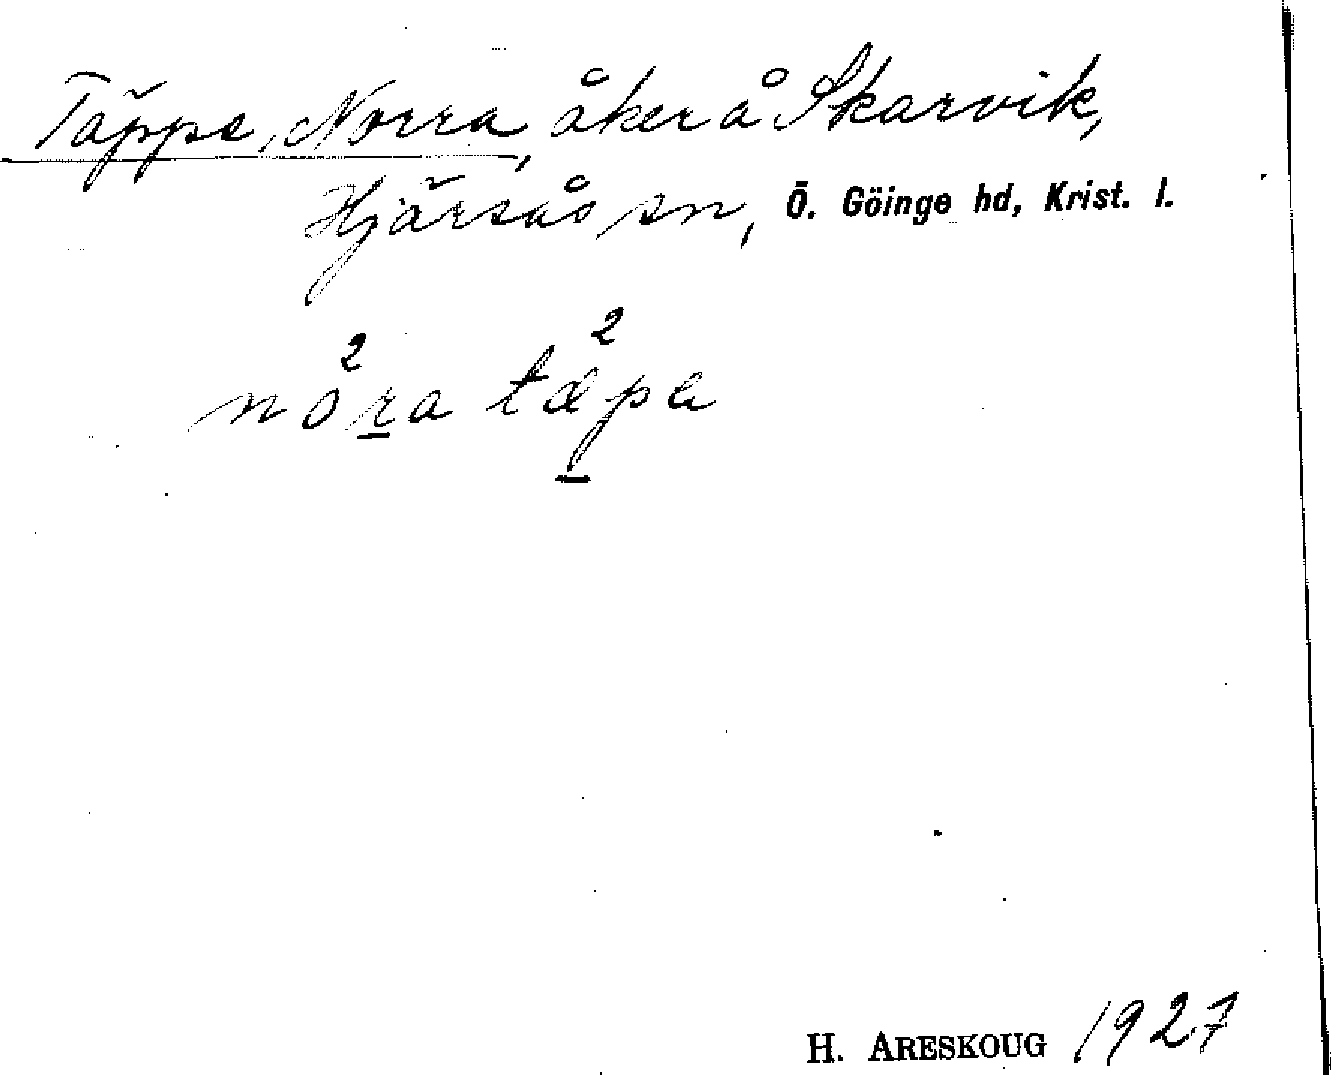 Täppe, Norra, åker å Skarvik,
Hjärsås sn, Ö. Göinge hd, Krist. l.
2 2
nora tæpa
H. ARESKOUG 1927